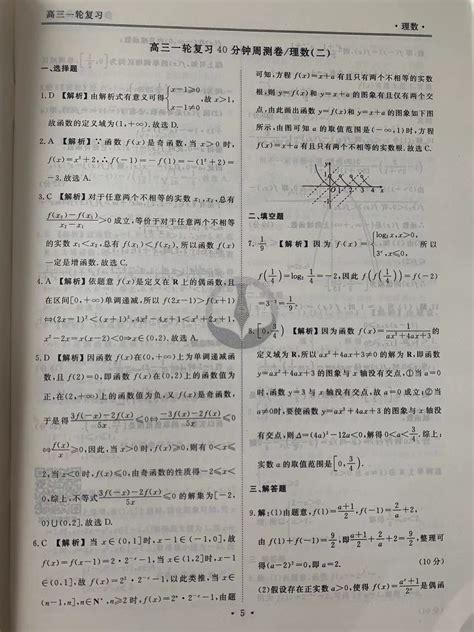 高三一轮复习
·理数·
高三一轮复习 40 分钟周测卷/理数(二)
一、选择题
1. D 【解析】由解析式有意义可得{x-1≥0, x-1≠0, 故 x>1,
故函数的定义域为(1,+∞). 故选 D.
2. A 【解析】∵函数 f(x)是奇函数,当 x>0 时,
f(x)=x²+2,∴f(-1)=-f(1)=-(1²+2)=
-3. 故选 A.
3. C 【解析】对于任意两个不相等的实数 x₁,x₂,总有
f(x₂)-f(x₁)/x₂-x₁>0 成立,等价于对于任意两个不相等
的实数 x₁<x₂,总有 f(x₁)<f(x₂),所以函数 f(x)
一定是增函数. 故选 C.
4. A 【解析】依题意 f(x)是定义在 R 上的偶函数,且
在区间[0,+∞)单调递减,所以 f(2x-1)>f(x+1)
⇔(2x-1)²<(x+1)²,4x²-4x+1<x²+2x+1,
x²-2x=x(x-2)<0⇒x∈(0,2). 故选 A.
5. D 【解析】因为函数 f(x)在(0,+∞)上为单调递减函
数,且 f(2)=0,即函数 f(x)在(0,2)上的函数值为
正,在(2,+∞)上的函数值为负,又 f(x)是奇函数,
于是得 3f(-x)-2f(x)/5x≥0⇔-3f(x)-2f(x)/5x≥0
⇔f(x)/x≤0,因此,当 x>0 时,f(x)≤0,
当 x<0 时,f(x)≥0,由奇函数的性质得-2≤x<
0,综上,不等式 3f(-x)-2f(x)/5x≥0 的解集为[-2,
0)∪
故选 D.
6. C 【解析】当 x∈(0,1]时,x-1∈(-1,0],故
f(x)=f(x-1)=2·2⁻ˣ-1,当 x∈(1,2]时,x-1
∈(0,1],故 f(x)=2·2⁻ˣ-1,以此类推,当 x∈
可知,方程 f(x)=x+a 有且只有两个不相等的实数
根,则 y=f(x)和 y=x+a 的图象有且仅有两个交
点,由此画出函数 y=f(x)和 y=x+a 的图象如图下
所示,由图可知 a 的取值范围是(-∞,1)时,f(x)=
x+a 有且只有两个不相等的实数根. 故选 C.
二、填空题
7. 1/9 【解析】因为 f(x)={log₂x,x>0, 3ˣ,x≤0, 所以
f(1/4)=log₂1/4=-2,因此 f(f(1/4))=f(-2)
=3⁻²=1/9.
8. [0,3/4) 【解析】因为函数
的
定义域为 R,所以 ax²+4ax+3≠0 的解为 R,即函数
y=ax²+4ax+3 的图象与 x 轴没有交点,①当 a=0
时,函数 y=3 与 x 轴没有交点,故 a=0 成立;②当
a≠0 时,要使函数 y=ax²+4ax+3 的图象与 x 轴没
有交点,则Δ=(4a)²-12a<0,解得 0<a<3/4. 综上:
实数 a 的取值范围是[0,3/4).
三、解答题
9. 解:(1)由题意,f(1)=a+1/2,f(-1)=2/a+2,
整理可
得(a-2)²=0,即 a=2. (10 分)
(2)假设存在正实数 a>0,使得
是偶函
5